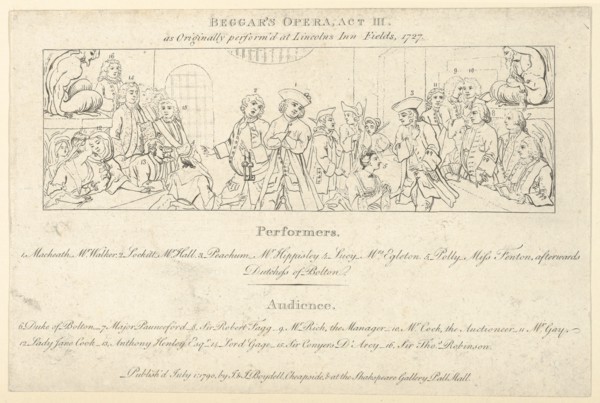 BEGGAR'S OPERA, ACT III.
as Originally perform'd at Lincolns Inn Fields, 1727.
Performers.
1. Macheath, Mr. Walker, 2. Lockitt, Mr. Hall, 3. Peachum, Mr. Hippisley, 4. Lucy, Mrs. Egleton, 5. Polly, Miss Fenton, afterwards
Dutchess of Bolton.
Audience.
6. Duke of Bolton, 7. Major Paunceford, 8. Sir Robert Fagg, 9. Mr. Rich, the Manager, 10. Mr. Cock, the Auctioneer, 11. Mr. Gay,
12. Lady Jane Cook, 13. Anthony Henley Esqr. 14. Lord Gage, 15. Sir Conyers D'Arcy, 16. Sir Thos. Robinson.
Publish'd July 1, 1790, by J. & J. Boydell, Cheapside, & at the Shakspeare Gallery, Pall Mall.